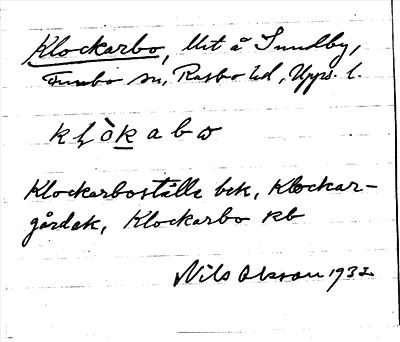 Klockarbo, lht å Sundby,
Funbo sn, Rasbo hd, Upps. l.
Klockarboställe bek, Klockar-
gårdek, Klockarbo kb
Nils 1932